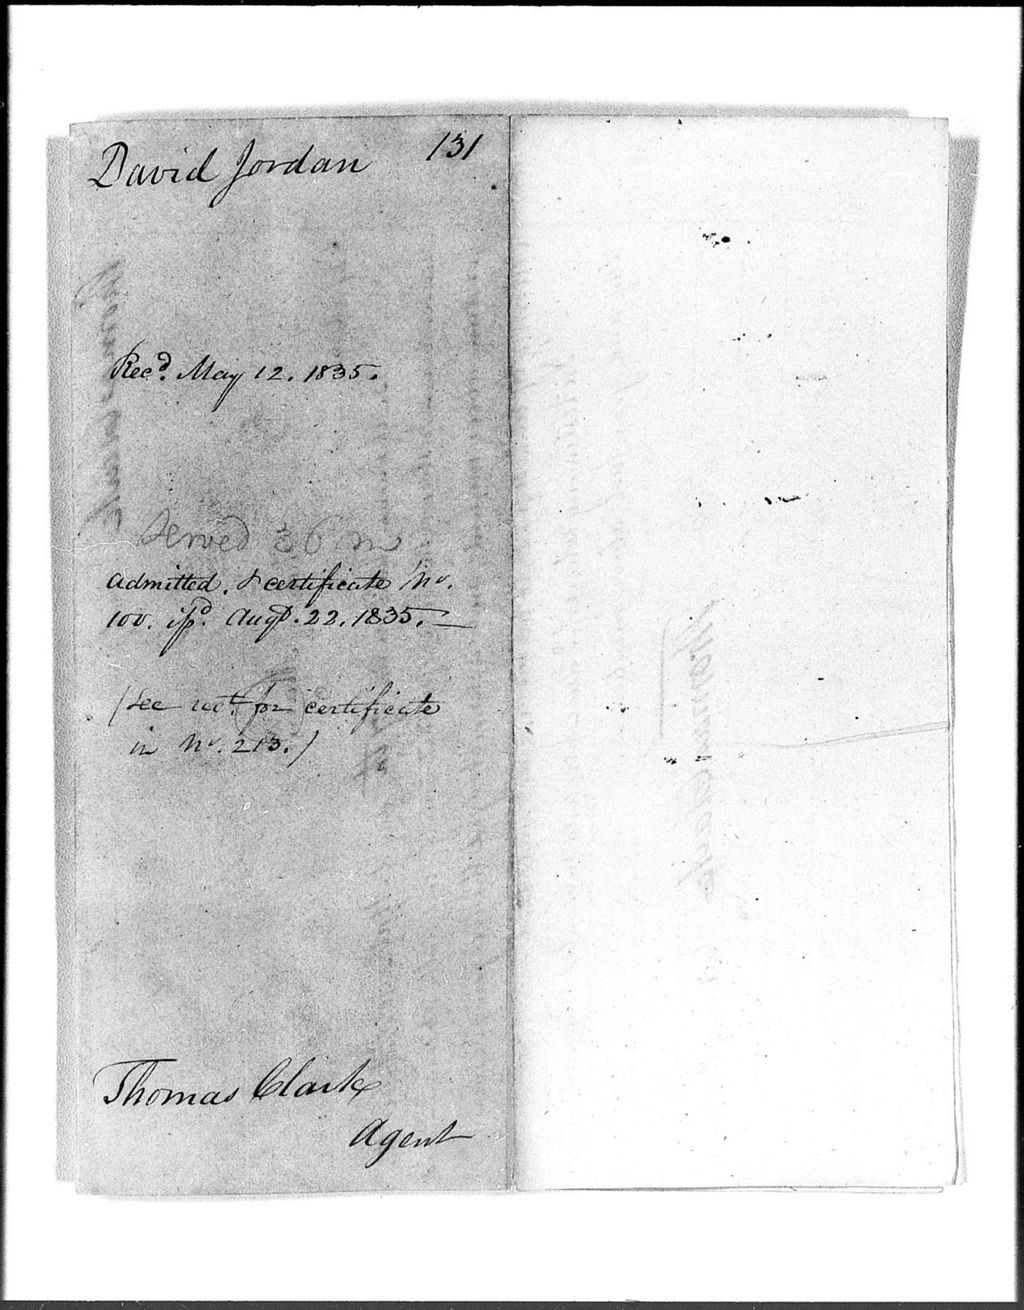 David Jordan 131
Recd. May 12. 1835.
Served 36 m
admitted. & certificate No.
100. isd. Augt. 22. 1835.
(See rect. for certificate
in No. 213.)
Thomas Clark
Agent